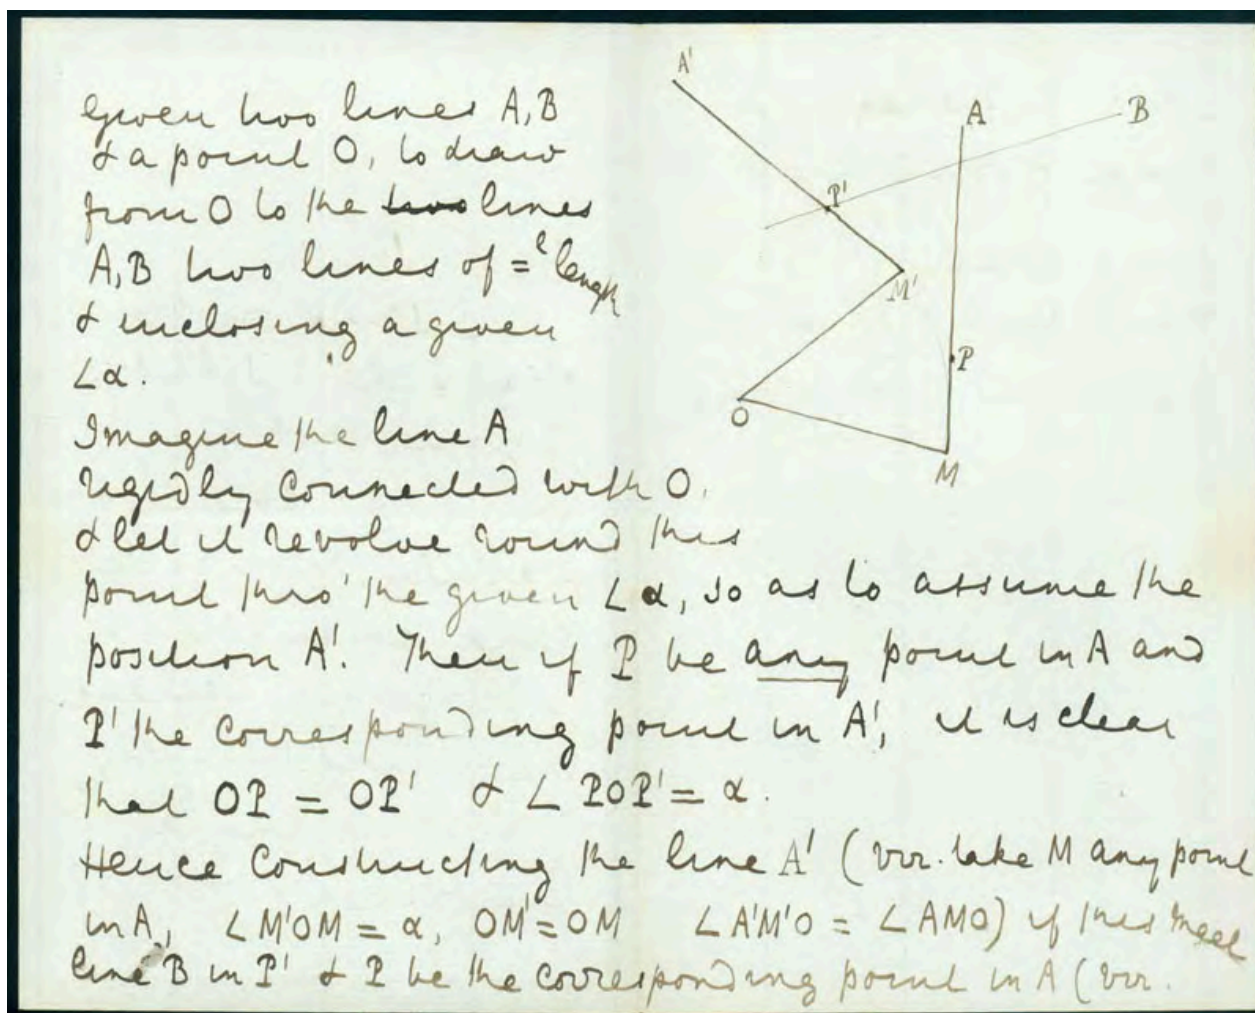 A'
A
B
P'
M'
P
O
M
Given two lines A, B
& a point O, to draw
from O to the two lines
A, B two lines of =l length
& inclosing a given
∠α.
Imagine the line A
rigidly connected with O,
& let it revolve round this
point thro' the given ∠α, so as to assume the
position A'. Then if P be any point in A and
P' the corresponding point in A', it is clear
that OP = OP' & ∠POP' = α.
Hence constructing the line A' (viz. take M any point
in A, ∠M'OM = α, OM' = OM ∠A'M'O = ∠AMO) if this meet
line B in P' & P be the corresponding point in A (viz.